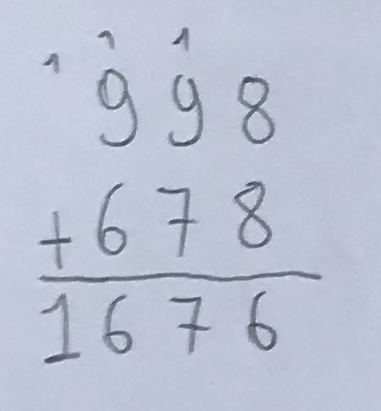 1 1 1
998
+678
1676